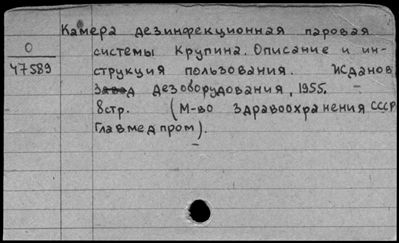 Камера дезинфекционная паровая
О
системы Крупина. Описание и ин-
47589
струкция пользования. Жданов,
Завод дезоборудования, 1955. –
8стр. (М-во здравоохранения СССР
Главмедпром).
–